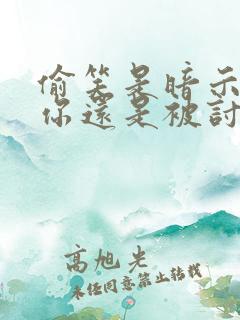 偷笑是暗示
你還是被討
高旭光
未任同意禁止转载